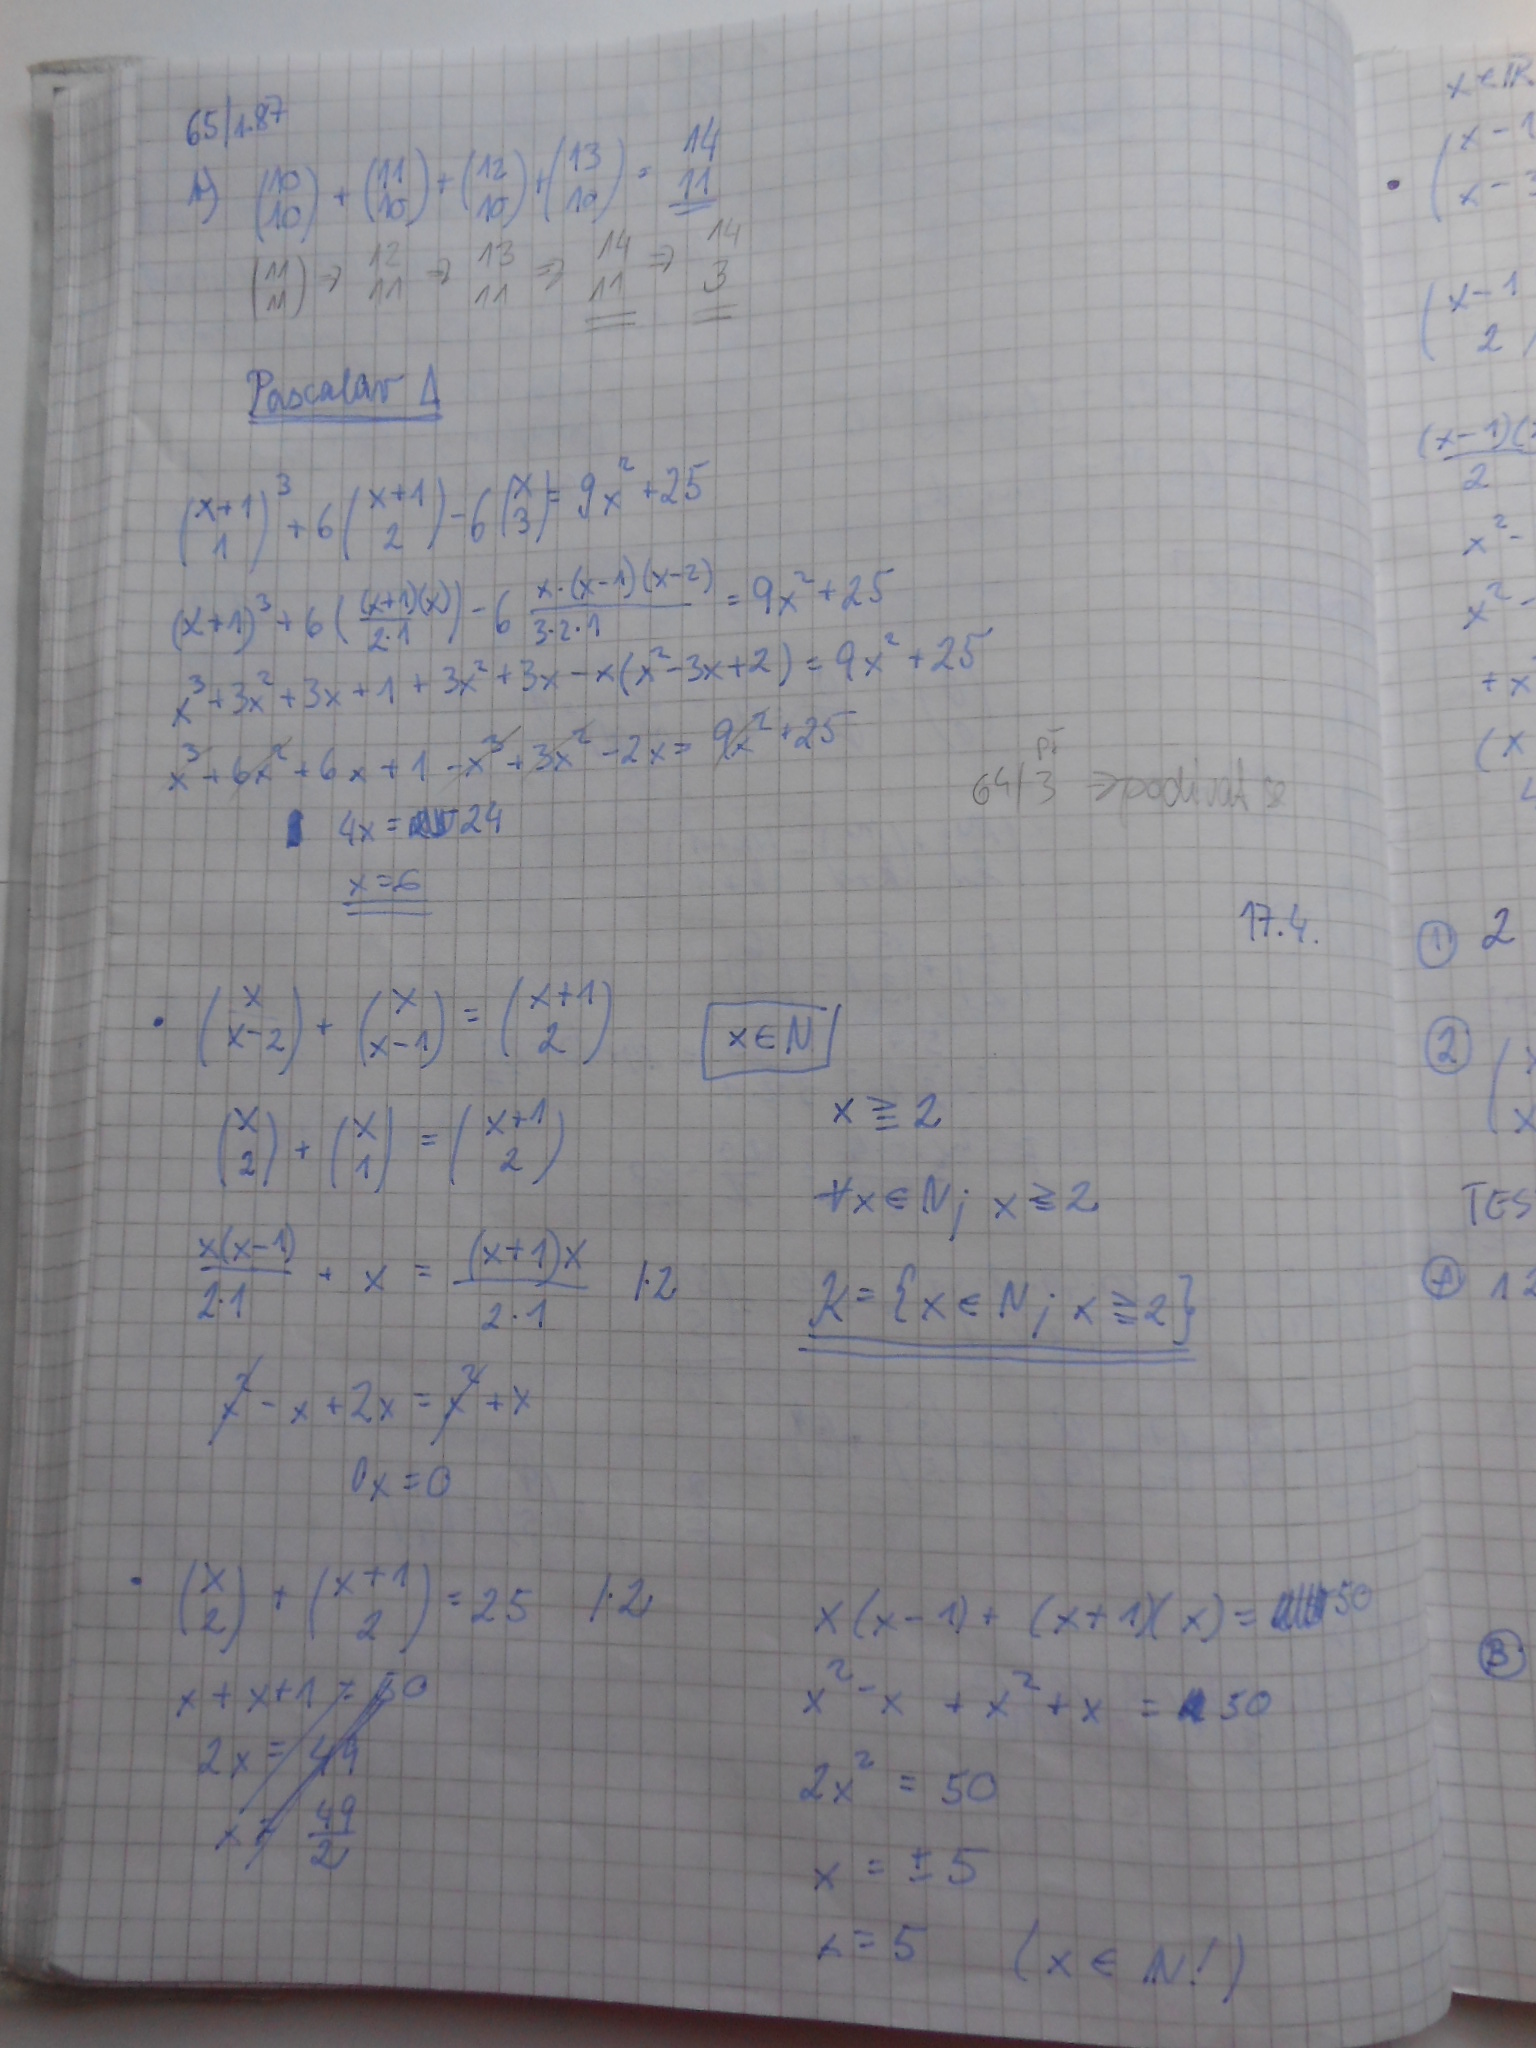 65/1.87
h) (10 10) + (11 10) + (12 10) + (13 10) = 14 11
(11 11) ⇒ 12 11 ⇒ 13 11 ⇒ 14 11 ⇒ 14 3
Pascalův Δ
(x+1 1)³ + 6(x+1 2) - 6(x 3) = 9x² + 25
(x+1)³ + 6((x+1)(x)/2·1) - 6 x·(x-1)(x-2)/3·2·1 = 9x² + 25
x³ + 3x² + 3x + 1 + 3x² + 3x - x(x² - 3x + 2) = 9x² + 25
x³ + 6x² + 6x + 1 - x³ + 3x² - 2x = 9x² + 25
4x = 24
x = 6
př
64/3 ⇒ podívat se
17.4.
• (x x-2) + (x x-1) = (x+1 2)
x ∈ N
(x 2) + (x 1) = (x+1 2)
x(x-1)/2·1 + x = (x+1)x/2·1 /·2
x² - x + 2x = x² + x
0x = 0
x ≧ 2
∀x ∈ N; x ≧ 2
K = {x ∈ N; x ≧ 2}
• (x 2) + (x+1 2) = 25 /·2
x + x+1 = 50
2x = 49
x = 49/2
x(x-1) + (x+1)(x) = 50
x² - x + x² + x = 50
2x² = 50
x = ± 5
x = 5 (x ∈ N!)
x ∈ R
• (x-1
x-3
(x-1
2
(x-1)(
2
x² -
x² -
+ x
(x
① 2
②
TES
Ⓐ 12
Ⓑ